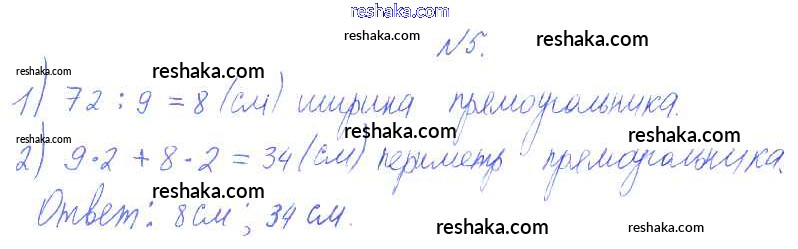 reshaka.com
reshaka.com №5. reshaka.com
reshaka.com reshaka.com reshaka.com
1) 72 : 9 = 8 (см) ширина прямоугольника.
reshaka.com reshaka.com
2) 9·2 + 8·2 = 34 (см) периметр прямоугольника.
reshaka.com reshaka.com
Ответ: 8 см; 34 см.
reshaka.com reshaka.com